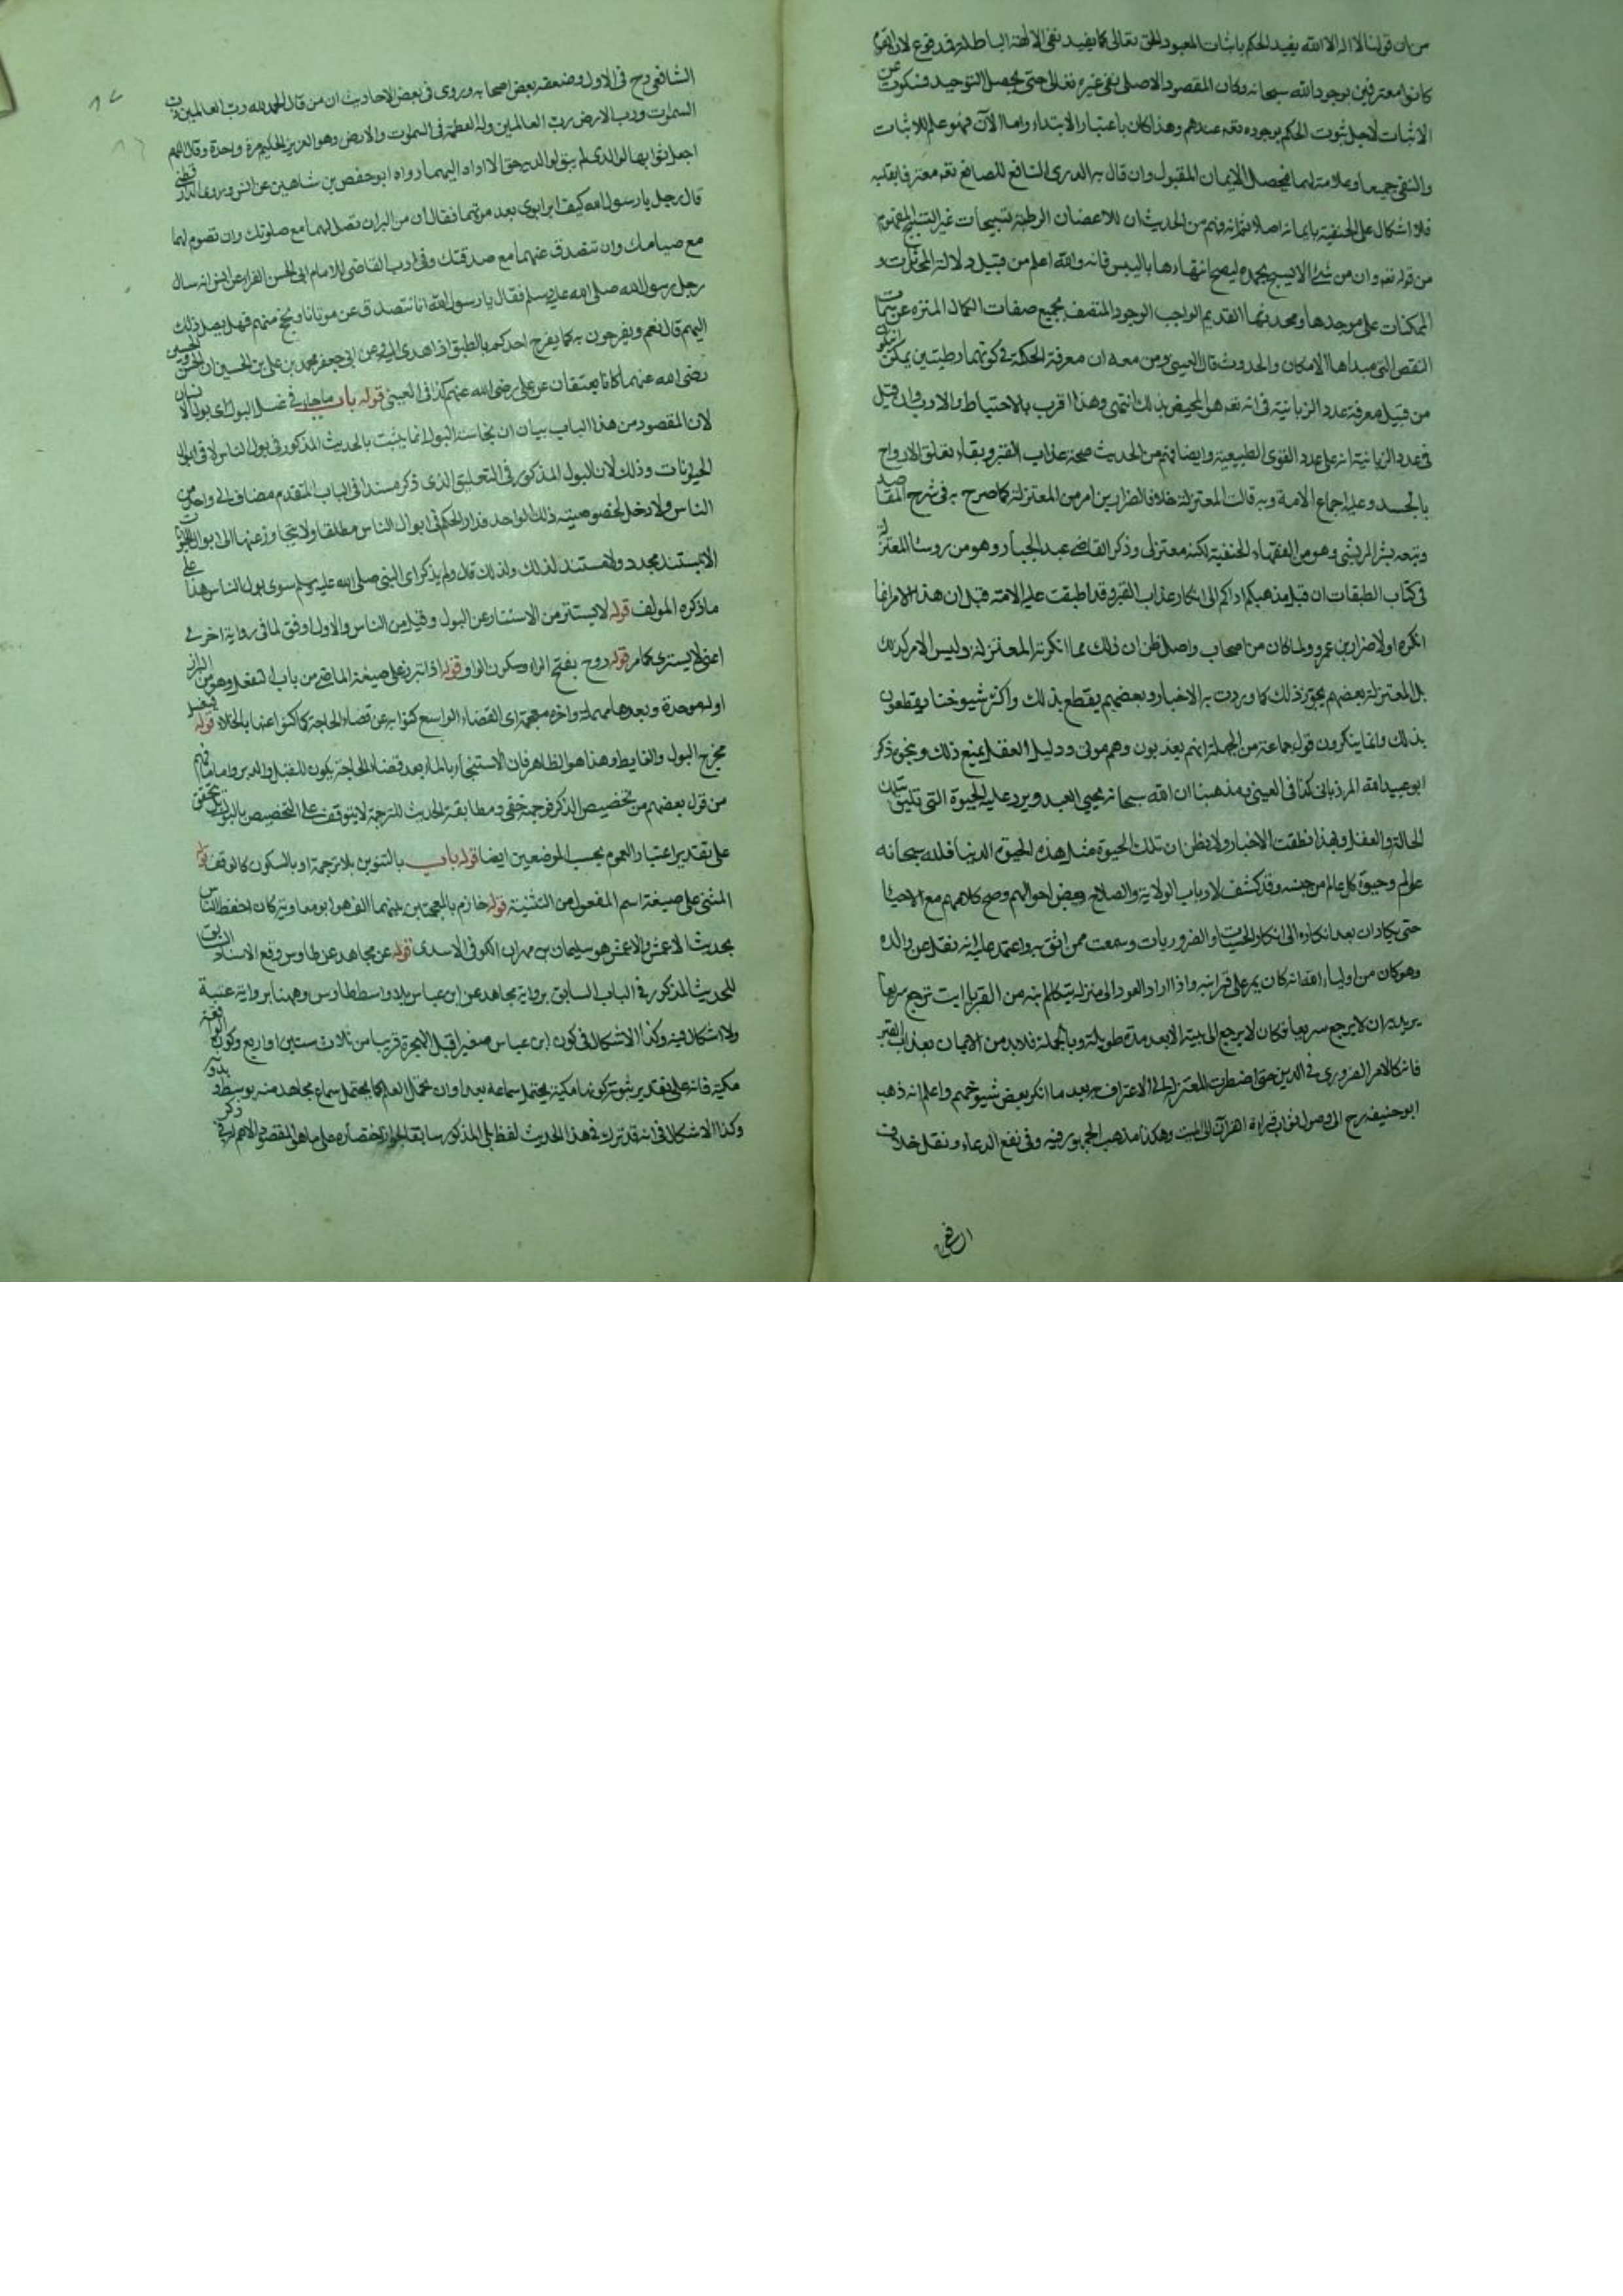 من ان قولنا لا اله الا الله يفيد الحكم باثبات المعبود الحق تعالى كما يفيد نفى الالهة الباطلة قد فوع لان القوم
كانوا معترفين بوجود الله سبحانه وكان المقصود الاصلى نفى غيره تعالى حتى يحصل التوحيد فسكوت عن
الاثبات لاجل ثبوت الحكم بوجوده تعم عندهم وهذا كان باعتبار الابتداء واما الآن فهو علم للاثبات
والنفى جميعا وعلامة لهما فيحصل الايمان المقبول وان قال به الدهرى النافع للصانع تعم معترفا بقلبه
فلا اشكال على الحنفية بايمانه اصلا ثم انه فهم من الحديث ان للاغصان الرطبة تسبيحات غير التسبيح المفهوم
من قوله تعم وان من شئ الا يسبح بحمده ليصح انتهاءها باليبس فانه والله اعلم من قبيل دلالة المحدثات و
الممكنات على موجدها ومحدثها القديم الواجب الوجود المتصف بجميع صفات الكمال المنزه عن سمات
النقص التى مبداها الامكان والحدوث قال العينى ومن معه ان معرفة الحكمة فى كونهما رطبتين يمكن ان تكون
من قبيل معرفة عدد الزبانية فى انه تعم هو المحيط بذلك انتهى وهذا اقرب بالاحتياط والادب وان قيل
فى عدد الزبانية انه على عدد القوى الطبيعية وايضا فهم من الحديث صحة عذاب القبر وبقاء تعلق الارواح
بالجسد وعليه اجماع الامة وبه قالت المعتزلة خلافا لضرار بن عمر من المعتزلة كما صرح به فى شرح المقاصد
وتبعه بشر المريسى وهو من الفقهاء الحنفية لكنه معتزلى وذكر القاضى عبد الجبار وهو من روساء المعتزلة
فى كتاب الطبقات ان قيل مذهبكم اداكم الى انكار عذاب القبر وقد اطبقت عليه الامة قيل ان هذا الامر انما
انكره اولا ضرار بن عمرو ولما كان من اصحاب واصل ظن ان ذلك مما انكرته المعتزلة وليس الامر كذلك
بل المعتزلة بعضهم يجوز ذلك كما وردت به الاخبار وبعضهم يقطع بذلك واكثر شيوخنا يقطعون
بذلك وانما ينكرون قول جماعة من الجهلة انهم يعذبون وهم موتى ودليل العقل يمنع ذلك وبنحوه ذكر
ابو عبيد الله المرزبانى كذا فى العينى ومذهبنا ان الله سبحانه يحيى العبد ويرد عليه الحيوة التى تليق بتلك
الحالة والعقل وبهذا نطقت الاخبار ولا يظن ان تلك الحيوة مثل هذه الحيوة الدنيا فلله سبحانه
عوالم وحيوة كل عالم من جنسه وقد كشف لارباب الولاية والصلاح بعض احوالهم وصح كلامهم مع الاحياء
حتى يكاد ان يعد انكاره الى انكار الحسيات والضروريات وسمعت ممن اثق به واعتمد عليه انه نقل عن والده
وهو كان من اولياء الله انه كان يمر على قبر ابنه واذا اراد العود الى منزله يتكلم ابنه من القبر يا ابت ترجع سريعا
يريد ان لا يرجع سريعا فكان لا يرجع الى بيته الا بعد مدة طويلة وبالجملة فلا بد من الايمان بعذاب القبر
فانه كالامر الضرورى فى الدين حتى اضطرت المعتزلة الى الاعتراف به بعد ما انكر بعض شيوخهم واعلم انه ذهب
ابو حنيفة رح الى وصول ثواب قراءة القرآن الى الميت وهكذا مذهب الجمهور فيه وفى نفع الدعاء ونقل خلاف
الشافعى رح فى الاول وضعفه بعض اصحابه وروى فى بعض الاحاديث ان من قال الحمد لله رب العالمين رب
السموات ورب الارض رب العالمين وله العظمة فى السموات والارض وهو العزيز الحكيم مرة واحدة وقال اللهم
اجعل ثوابها لوالدى لم يبق لوالديه حق الا اداه اليهما رواه ابو حفص بن شاهين عن انس وروى الدارقطنى
قال رجل يا رسول الله كيف ابر ابوى بعد موتهما فقال ان من البر ان تصلى لهما مع صلوتك وان تصوم لهما
مع صيامك وان تتصدق عنهما مع صدقتك وفى ادب القاضى للامام ابى الحسن الفراء عن انس انه سال
رجل رسول الله صلى الله عليه وسلم فقال يا رسول الله انا نتصدق عن موتانا ونحج عنهم فهل يصل ذلك
اليهم قال نعم ويفرحون به كما يفرح احدكم بالطبق اذا هدى اليه وعن ابى جعفر محمد بن على بن الحسين ان الحسن والحسين
رضى الله عنهما كانا يعتقان عن على رضى الله عنهم كذا فى العينى قوله باب ما جاء فى غسل البول اى بول الانسان
لان المقصود من هذا الباب بيان ان نجاسة البول انما يثبت بالحديث المذكور فى بول الناس لا فى ابوال
الحيوانات وذلك لان البول المذكور فى التعليق الذى ذكر مسندا فى الباب المتقدم مضاف الى واحد من
الناس ولا دخل لخصوصية ذلك الواحد فدار الحكم فى ابوال الناس مطلقا ولا يتجاوز عنها الى ابوال الحيوانات
الا بمستند مجدد ولا مستند لذلك ولذلك قال ولم يذكر اى النبى صلى الله عليه وسلم سوى بول الناس هذا على
ما ذكره المولف قوله لا يستتر من الاستتار عن البول وقيل من الناس والاول اوفق لما فى رواية اخرى
اعنى لا يستبرئ كما مر قوله روح بفتح الراء وسكون الواو قوله اذا تبرز على صيغة الماضى من باب التفعل وهو من البراز
اوله موحدة وبعدها مهملة واخره معجمة اى الفضاء الواسع كنوا به عن قضاء الحاجة كما كنوا عنها بالخلاء قوله فيغسل
مخرج البول والغايط وهذا هو الظاهر فان الاستنجاء بالماء بعد قضاء الحاجة يكون للقبل والدبر واما ما فهم
من قول بعضهم من تخصيص الذكر فوجهه خفى ومطابقة الحديث للترجمة لا يتوقف على التخصيص بالبول بل تحقق
على تقدير اعتبار العموم بحسب الموضعين ايضا قوله باب بالتنوين بلا ترجمة او بالسكون كالوقف قوله
المثنى على صيغة اسم المفعول من التثنية قوله خازم بالمعجمتين بينهما الف هو ابو معاوية كان احفظ الناس
بحديث الاعمش والاعمش هو سليمان بن مهران الكوفى الاسدى قوله عن مجاهد عن طاوس وقع الاسناد السابق
للحديث المذكور فى الباب السابق برواية مجاهد عن ابن عباس بلا واسطة طاوس وههنا برواية عنه
ولا اشكال فيه وكذا لا اشكال فى كون ابن عباس صغيرا قبل الهجرة قريبا من ثلاث سنين او اربع وكون الواقعة
مكية فانه على تقدير ثبوت كونها مكية يحتمل سماعه بعد اوان تحمل العلم كما يحتمل سماع مجاهد منه بوسط وبدونه
وكذا لا اشكال فى انه قد ترك فى هذا الحديث لفظ بلى المذكور سابقا لجواز اختصاره على ما هو المقصود الاهم